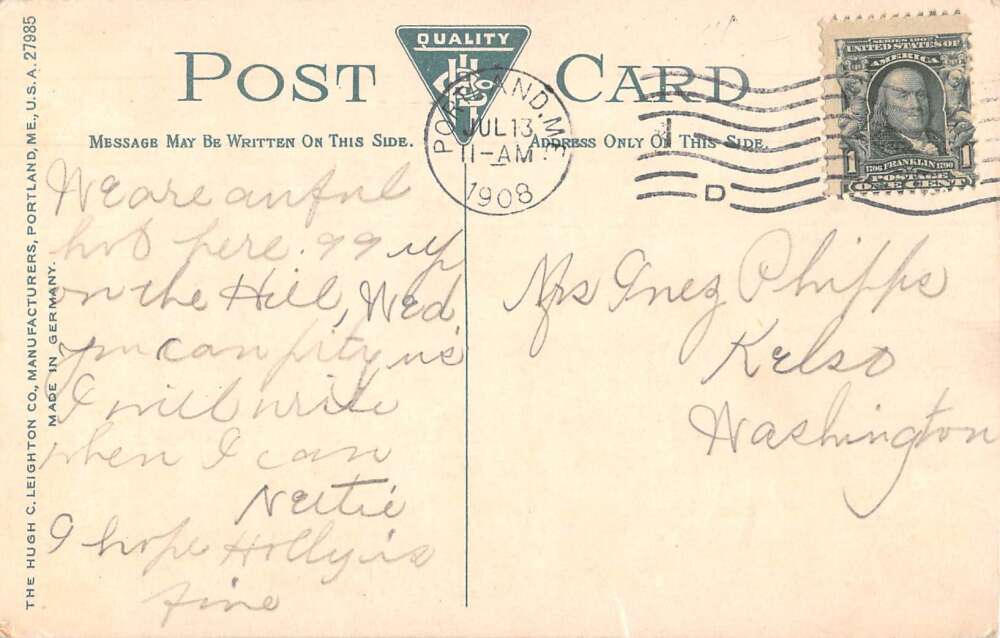 THE HUGH C. LEIGHTON CO., MANUFACTURERS, PORTLAND, ME., U.S.A. 27985
MADE IN GERMANY.
QUALITY
POST CARD
MESSAGE MAY BE WRITTEN ON THIS SIDE.
ADDRESS ONLY ON THIS SIDE.
PORTLAND, ME.
JUL 13
11-AM
1908
D
SERIES 1902
UNITED STATES OF
AMERICA
1 1706 FRANKLIN 1790 1
POSTAGE
ONE CENT
We are awful
hot here. 99 up
on the Hill, Wed.
you can pity us
I will write
when I can
Nettie
I hope Holly is
fine
Mrs Inez Phipps
Kelso
Washington